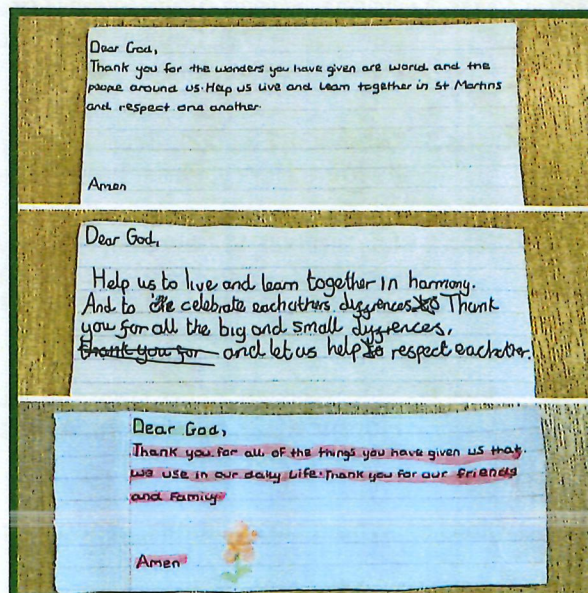 Dear God,
Thank you for the wonders you have given are world and the
peopre around us. Help us live and learn together in St Martins
and respect one another.
Amen
Dear God,
Help us to live and learn together in harmony.
And to celebrate eachothers dyfrences. Thank
you for all the big and small dyfrences,
thank you for and let us help to respect eachother.
Dear God,
Thank you for all of the things you have given us that
we use in our daily Life. Thank you for our friends
and Family
Amen